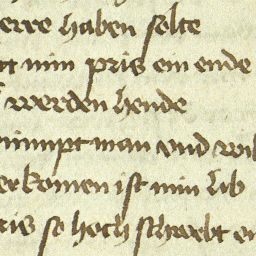 erre haben solte
tt min pris ein ende
werden hende
nimpt man vnd wil
erkomen ist min lib
ris so hoch schwebt en